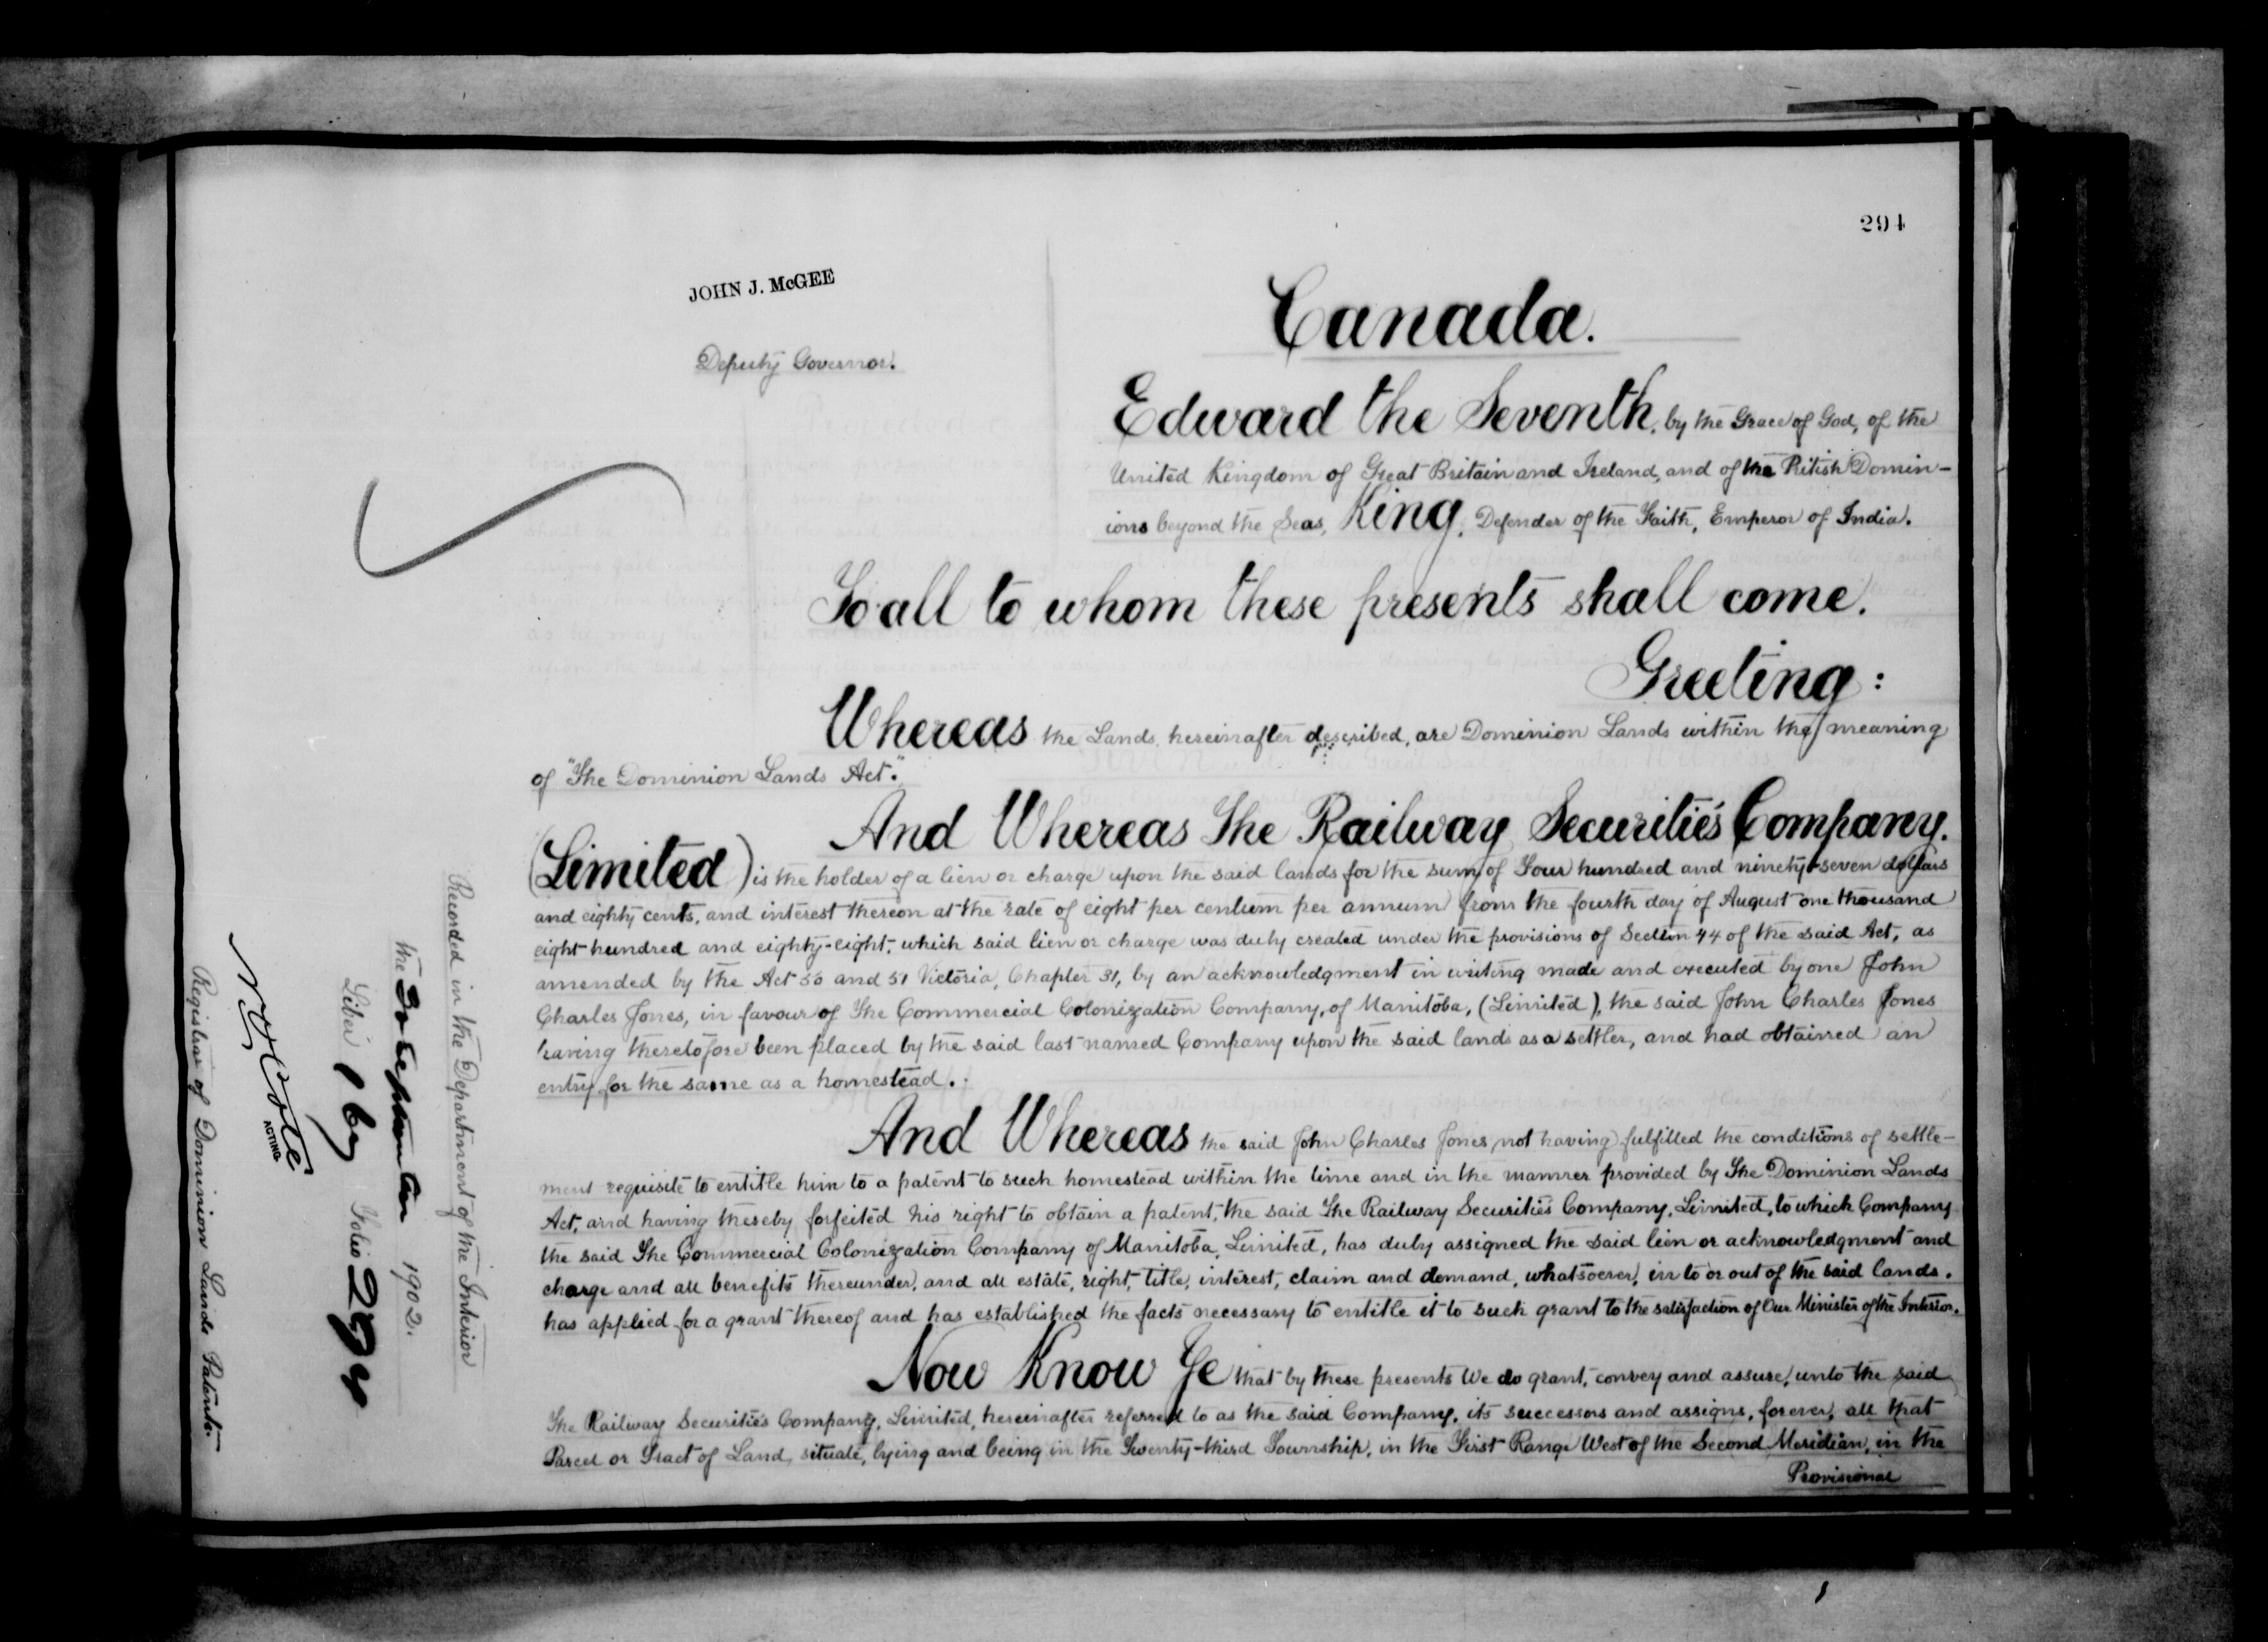 294
JOHN J. McGEE
Deputy Governor.
Canada.
Edward the Seventh, by the Grace of God, of the
United Kingdom of Great Britain and Ireland, and of the Ritish Domin-
ions beyond the Seas, King, Defender of the Faith, Emperor of India.
To all to whom these presents shall come.
Greeting:
Whereas the Lands, hereinafter described, are Dominion Lands within the meaning
of "The Dominion Lands Act".
And Whereas The Railway Securities Company.
(Limited) is the holder of a lien or charge upon the said lands for the sum of Four hundred and ninety-seven dollars
and eighty cents, and interest thereon at the rate of eight per centum per annum from the fourth day of August one thousand
eight hundred and eighty-eight, which said lien or charge was duly created under the provisions of Section 44 of the said Act, as
amended by the Act 50 and 51 Victoria, Chapter 31, by an acknowledgment in writing made and executed by one John
Charles Jones, in favour of The Commercial Colonization Company, of Manitoba, (Limited), the said John Charles Jones
having theretofore been placed by the said last named Company upon the said lands as a settler, and had obtained an
entry for the same as a homestead.
And Whereas the said John Charles Jones, not having fulfilled the conditions of settle-
ment requisite to entitle him to a patent to such homestead within the time and in the manner provided by The Dominion Lands
Act, and having thereby forfeited his right to obtain a patent, the said The Railway Securities Company, Limited, to which Company
the said The Commercial Colonization Company of Manitoba, Limited, has duly assigned the said lien or acknowledgment and
charge and all benefits thereunder, and all estate, right, title, interest, claim and demand, whatsoever, in to or out of the said lands.
has applied for a grant thereof and has established the facts necessary to entitle it to such grant to the satisfaction of Our Minister of the Interior.
Now Know Ye that by these presents We do grant, convey and assure, unto the said
The Railway Securities Company, Limited, hereinafter referred to as the said Company, its successors and assigns, forever, all that
Parcel or Tract of Land, situate, lying and being in the Twenty-third Township, in the First Range West of the Second Meridian, in the
Provisional
Recorded in the Department of the Interior
the 30 September 1902.
Liber 167 Folio 294
ACTING
Registrar of Dominion Lands Patents.